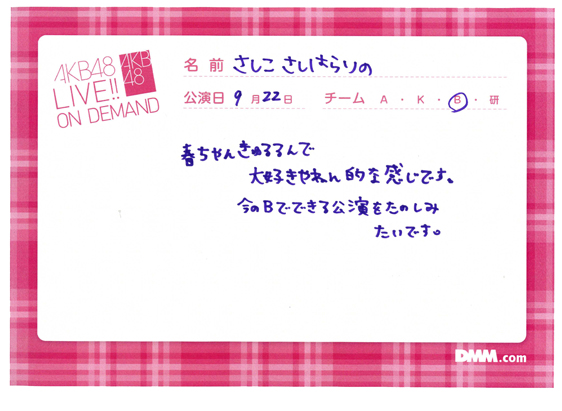 AKB48
LIVE!!
ON DEMAND
AKB
48
名前 さしこ さしはらりの
公演日 9月22日 チーム A・K・B・研
春ちゃんきゅるるんで
大好きやねん的な感じです。
今のBでできる公演をたのしみ
たいです。
DMM.com